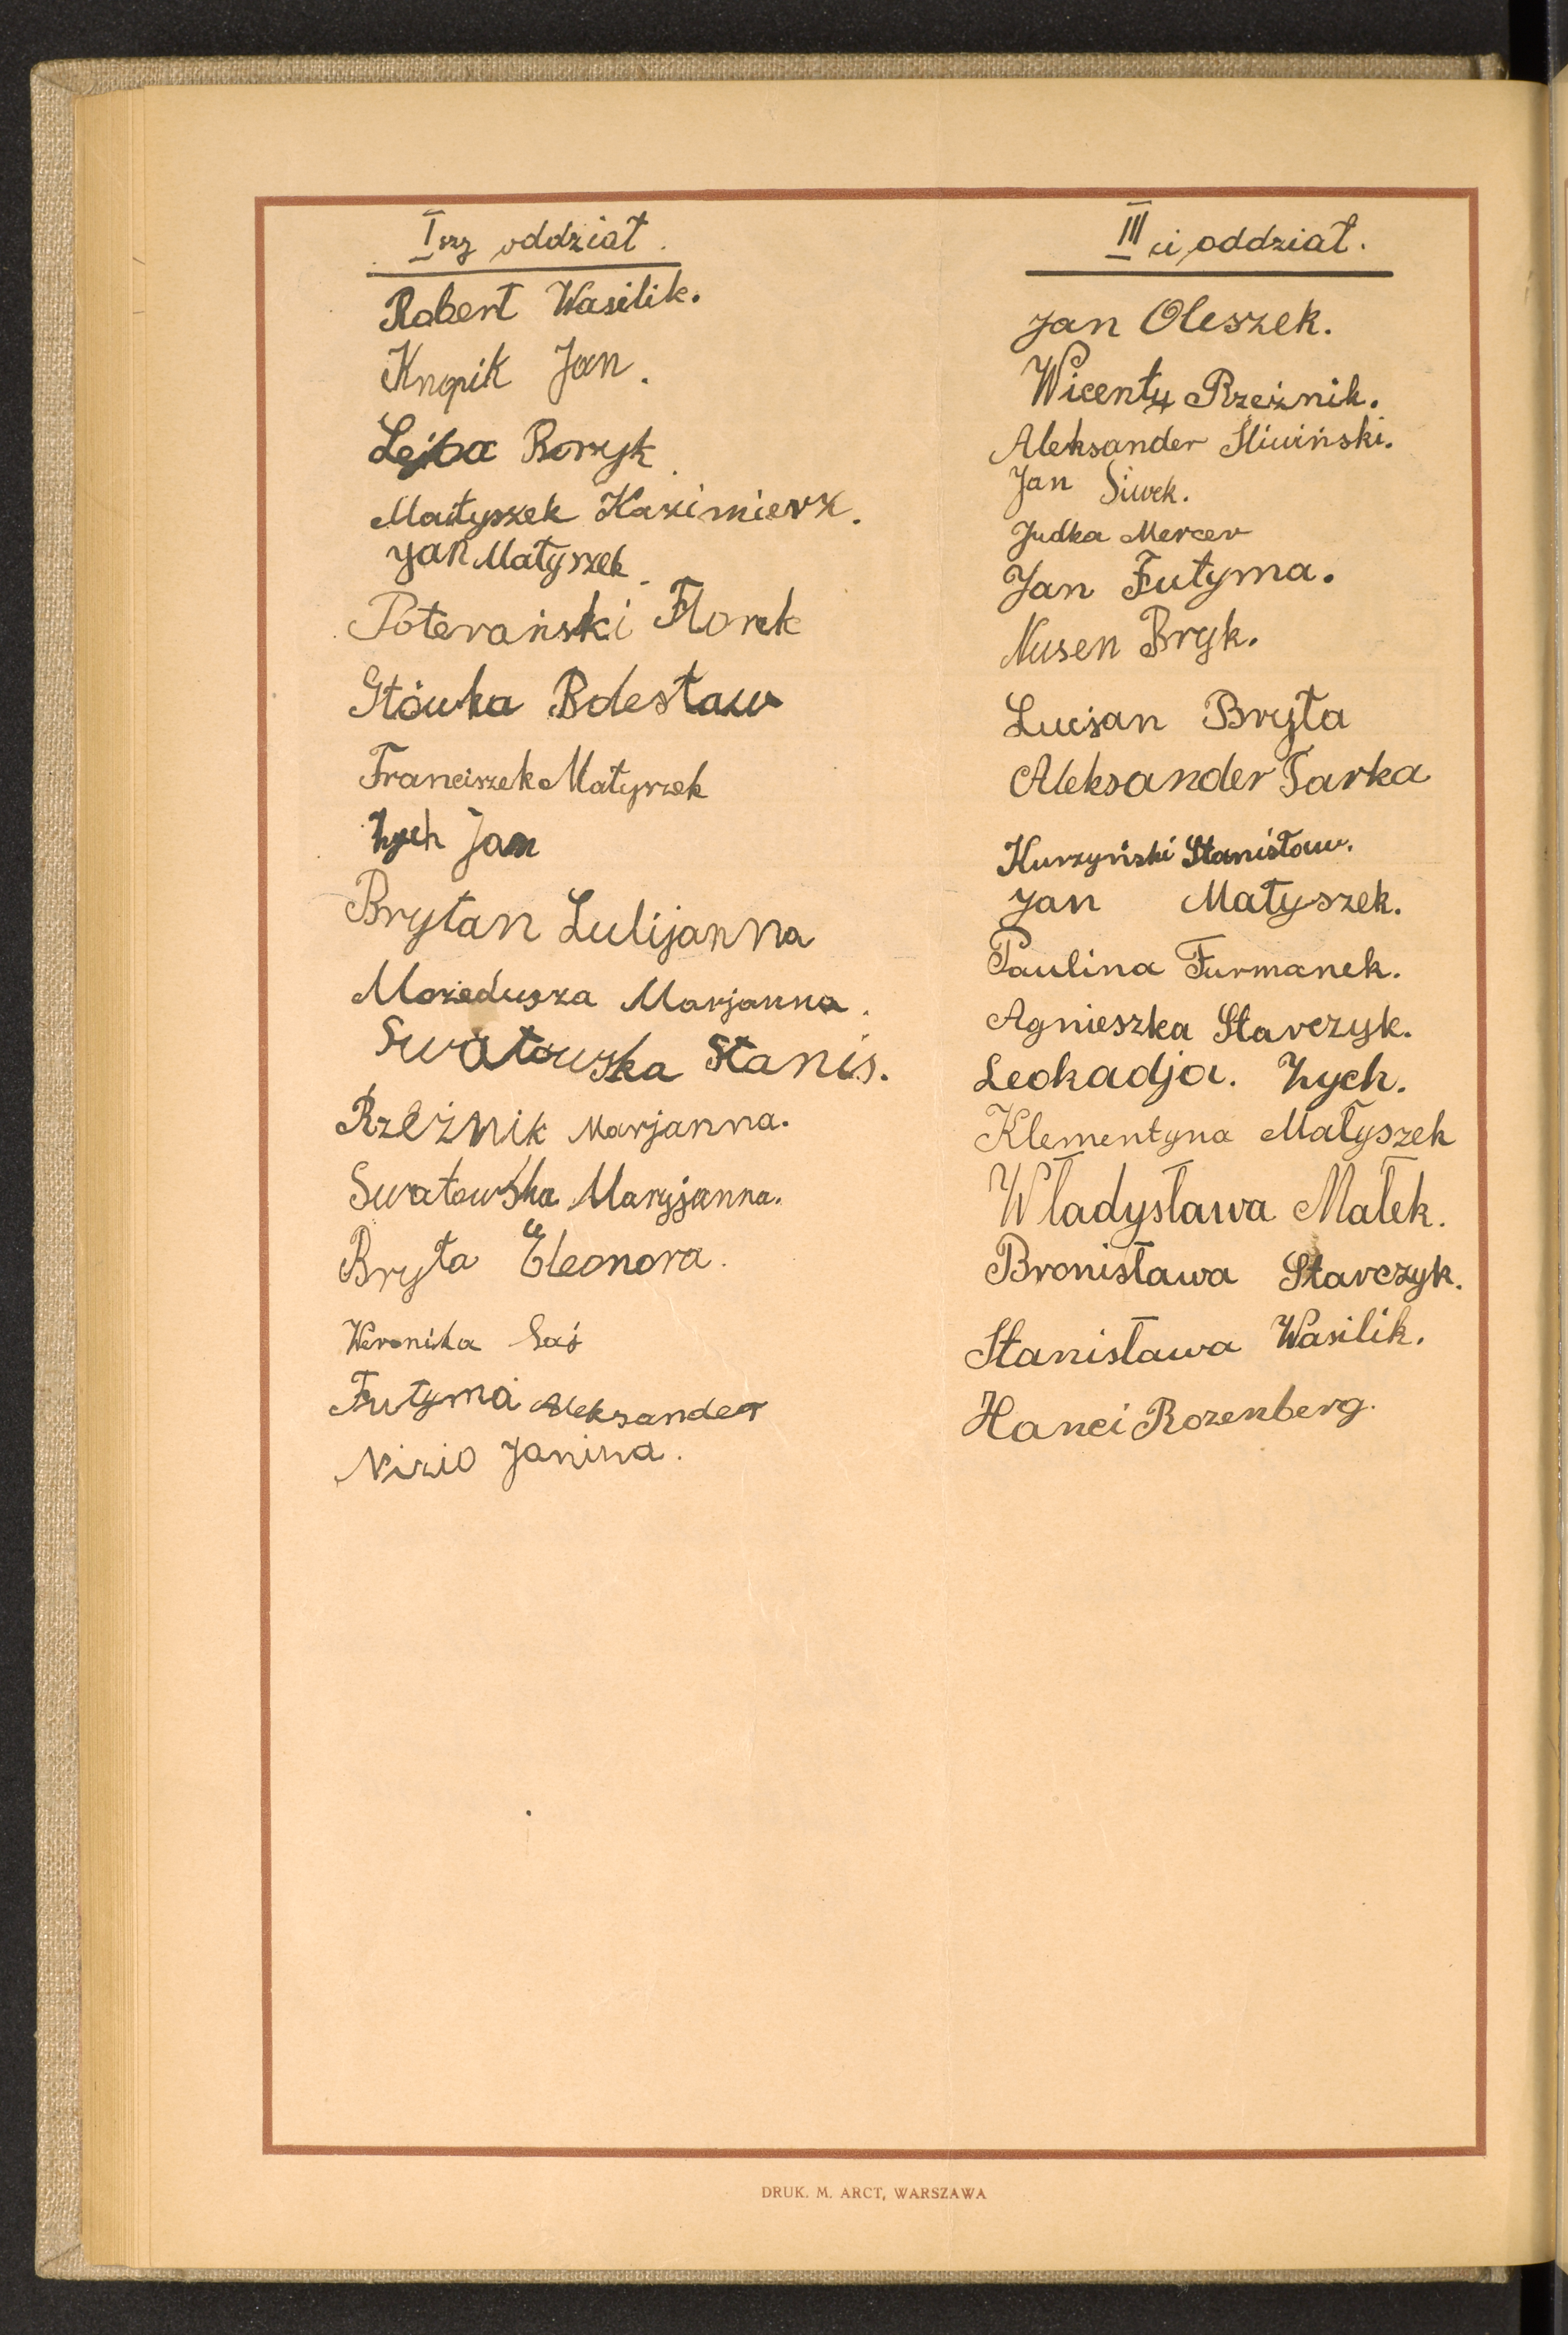 I szy oddział.
Robert Wasilik.
Knopik Jan.
Lejba Boryk
Matyszek Kazimierz.
Jan Matyszek.
Poterański Florek
Główka Bolesław
Franciszek Matyszek
Zych Jan
Brytan Lulijanna
Morzedusza Marjanna.
Swatowska Stanis.
Rzeżnik Marjanna.
Swatowska Maryjanna.
Bryta Eleonora.
Weronika Soś
Futyma Aleksander
Nizio Janina.
III ci oddział.
Jan Oleszek.
Wicenty Rzeżnik.
Aleksander Śliwiński.
Jan Siwek.
Judka Mercer
Jan Futyma.
Nusen Bryk.
Lucjan Bryła
Aleksander Tarka
Kurzyński Stanisław.
Jan Matyszek.
Paulina Furmanek.
Agnieszka Starczyk.
Leokadja. Zych.
Klementyna Małyszek
Władysława Małek.
Bronisława Starczyk.
Stanisława Wasilik.
Hanci Rozenberg.
DRUK. M. ARCT, WARSZAWA